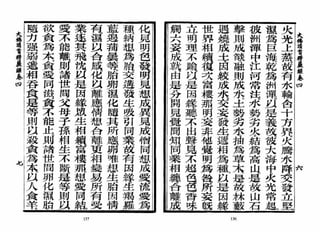 火光上蒸故有水輪含十方界火騰水降交發立堅
濕爲巨海乾爲洲潬以是義故彼大海中火光常起
彼洲潬中江河常注水勢劣火結爲高山是故山石
擊則成𦦨融則成水土勢劣水抽爲草木是故林藪
遇燒成土因絞成水交妄發生遞相爲種以是因緣
世界相續復次富樓那明妄非他覺明爲咎所妄既
立明理不踰以是因緣聽不出聲見不超色色香味
觸六妄成就由是分開見覺聞知同業相纏合離成
化見明色發明見想成異見成憎同想成愛流愛爲
種納想爲胎交遘發生吸引同業故有因緣生羯羅
藍遏蒲曇等胎卵濕化隨其所應卵唯想生胎因情
有濕以合感化以離應情想合離更相變易所有受
業逐其飛沈以是因緣衆生相續富樓那想愛同結
愛不能離則諸世間父母子孫相生不斷是等則以
欲貪爲本貪愛同滋貪不能止則諸世間卵化濕胎
隨力強弱遞相吞食是等則以殺貪爲本以人食羊